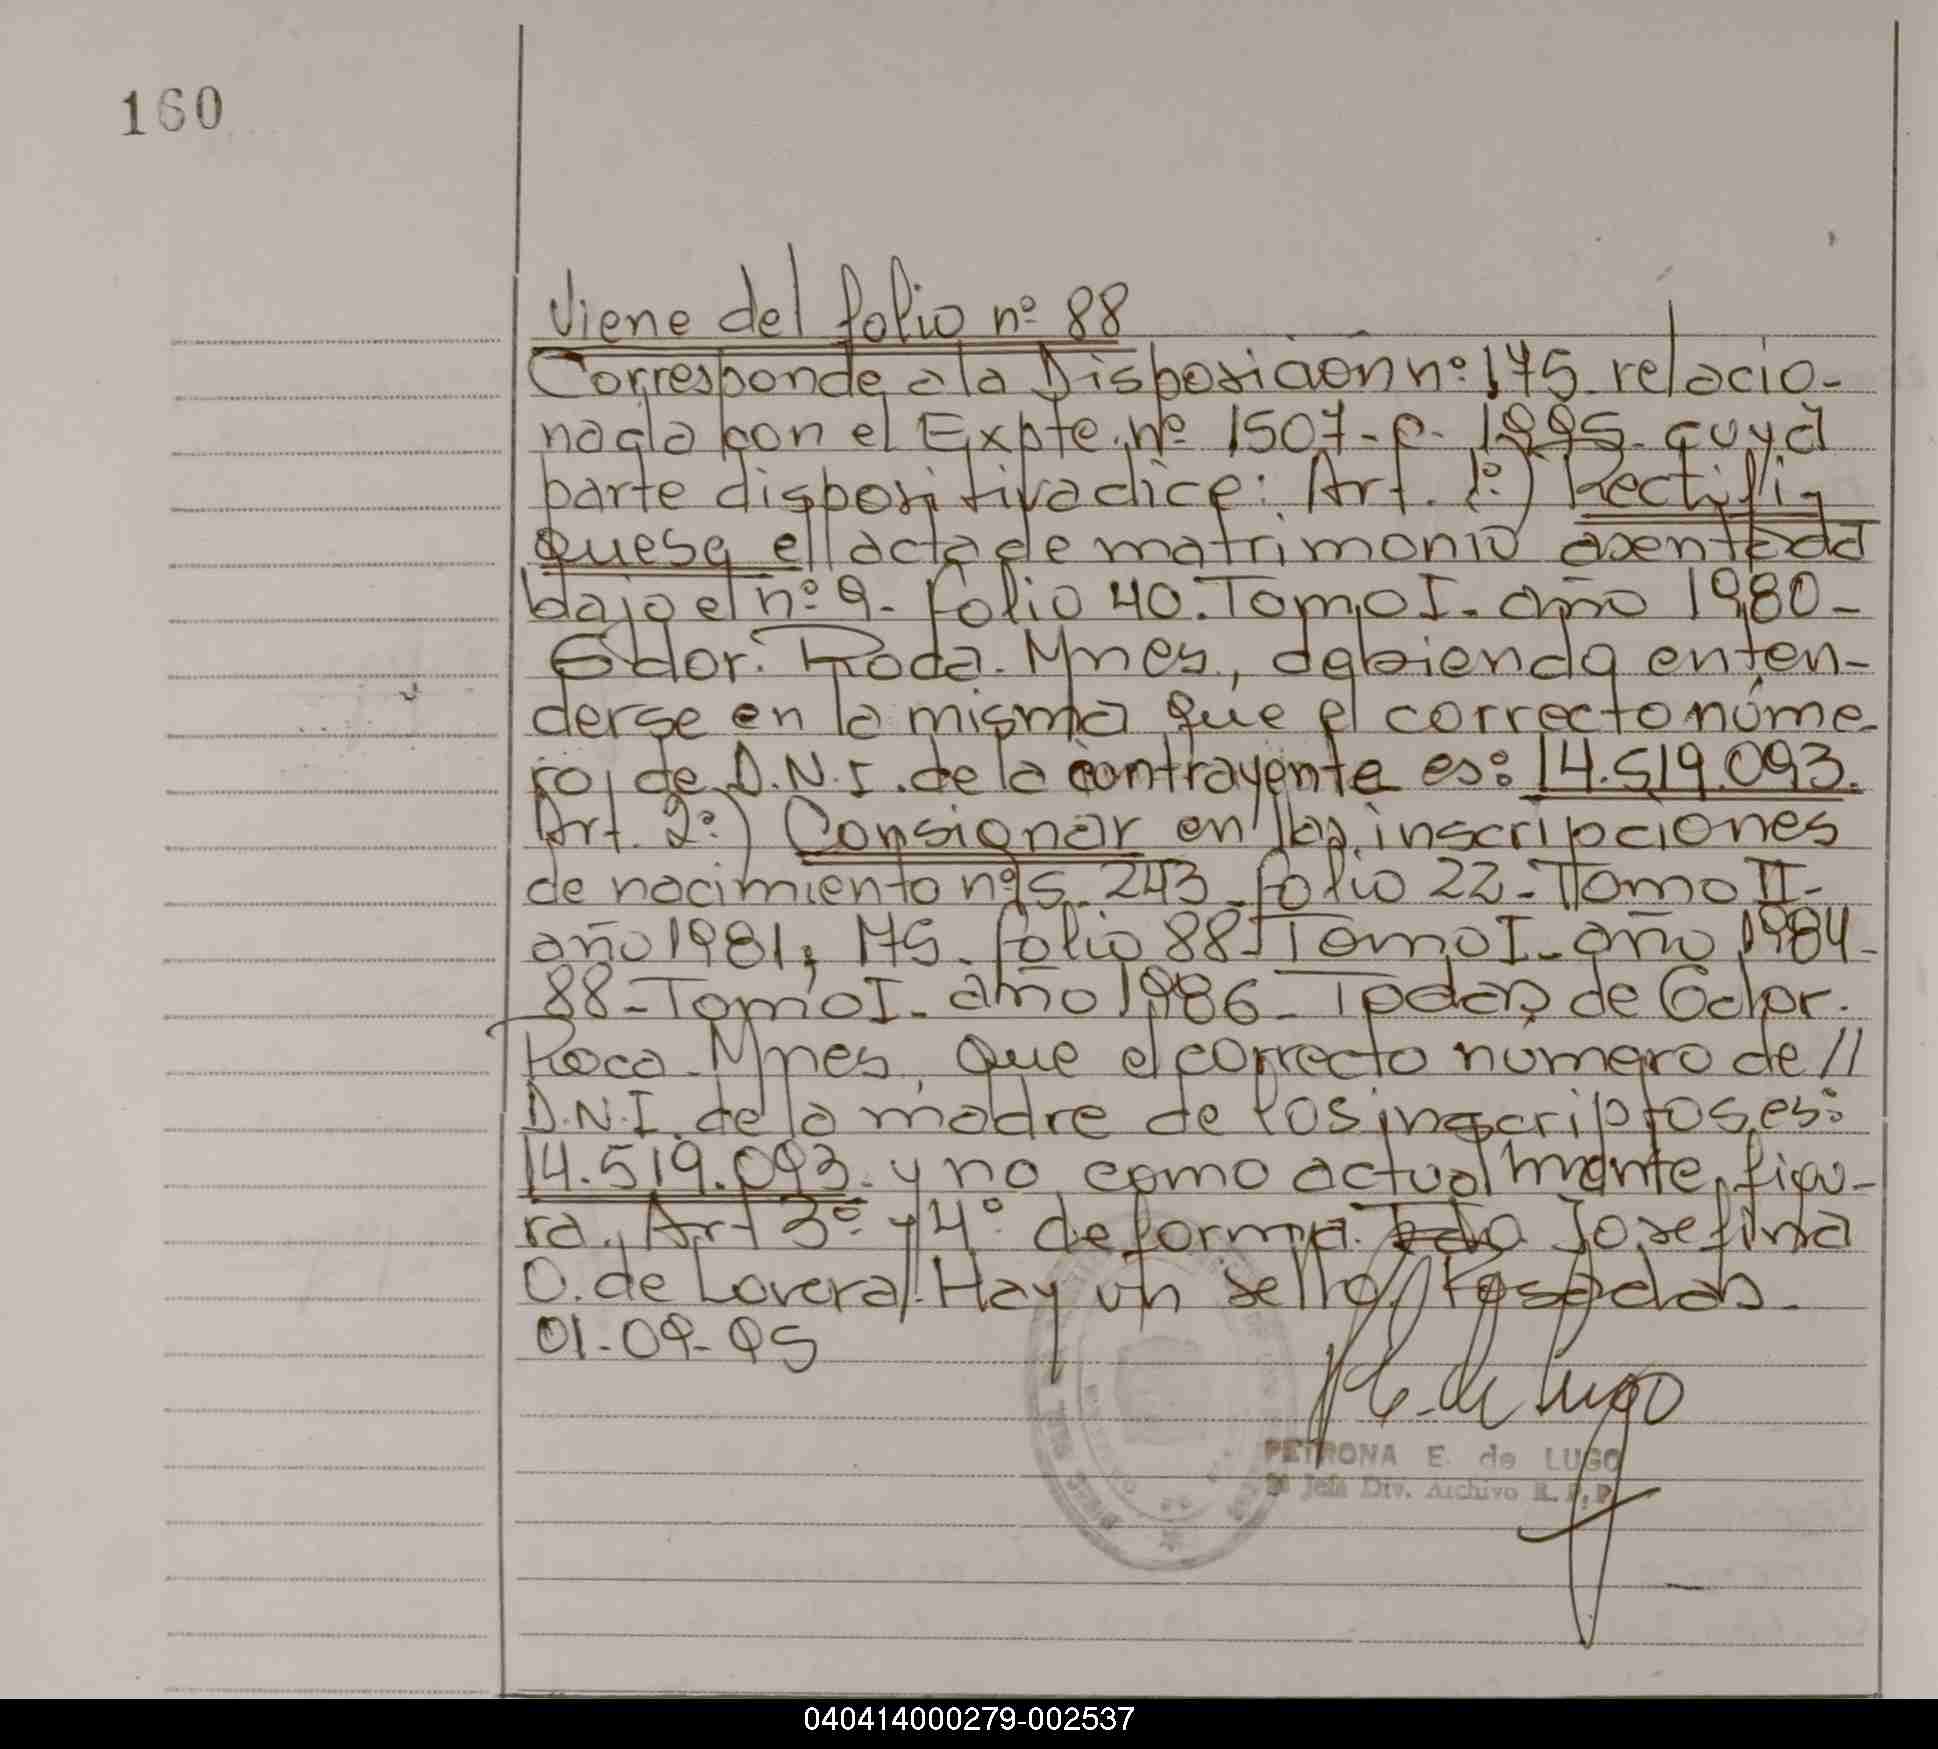 160
Viene del folio nº 88
Corresponde a la Disposición nº 175 relacio-
nada con el Expte. nº 1507-P- 1995- cuya
parte dispositiva dice: Art. 1º) Rectifí-
quese el acta de matrimonio asentada
bajo el nº 9- folio 40. Tomo I- año 1980-
Gdor. Roca. Mnes, debiendo enten-
derse en la misma que el correcto núme-
ro de D.N.I. de la contrayente es: 14.519.093.
Art. 2º) Consignar en las inscripciones
de nacimiento nºs 243- folio 22- Tomo II-
año 1981; 175- folio 88- Tomo I- año 1984-
88- Tomo I- año 1986- Todas de Gdor.
Roca- Mnes, que el correcto número de //
D.N.I. de la madre de los inscriptos es:
14.519.093- y no como actualmente figu-
ra. Art 3º y 4º de forma. Fdo Josefina
O. de Lovera. Hay un sello. Posadas-
01-09-95
PETRONA E. de LUGO
Jefa Div. Archivo R. P. P.
040414000279-002537